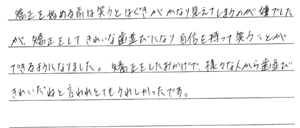 矯正を始める前は笑うとはぐきがかなり見えてしまうのが嫌でした
が、矯正をしてきれいな歯並びになり自信を持って笑うことが
できるようになりました。矯正をしたおかげで、様々な人から歯並び
きれいだねと言われとてもうれしかったです。